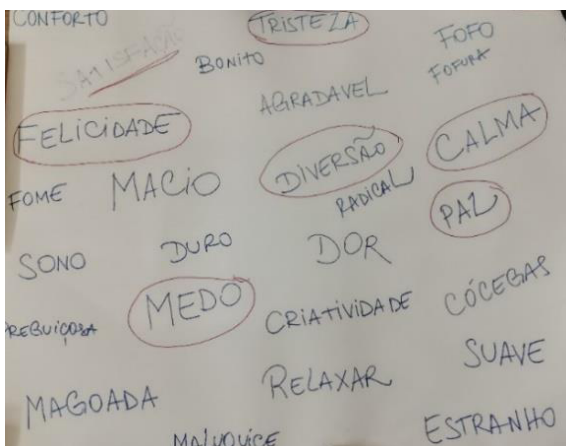 CONFORTO
TRISTEZA
FOFO
FOFURA
SATISFAÇÃO
BONITO
AGRADAVEL
FELICIDADE
DIVERSÃO
CALMA
FOME
MACIO
RADICAL
PAZ
SONO
DURO
DOR
MEDO
CRIATIVIDADE
CÓCEGAS
PREGUIÇOSA
SUAVE
MAGOADA
RELAXAR
MALUQUICE
ESTRANHO